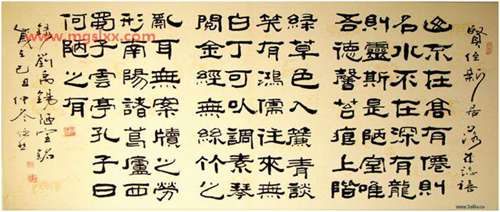 居落
山不在高有僊則
名水不在深有龍
則靈斯是陋室唯
吾德馨苔痕上階
綠草色入簾青談
笑有鴻儒往來無
白丁可以調素琴
閱金經無絲竹之
亂耳無案牘之勞
形南陽諸葛廬西
蜀子雲亭孔子曰
何陋之有
錄劉禹錫陋室銘
己丑仲冬
www.mgslxx.com